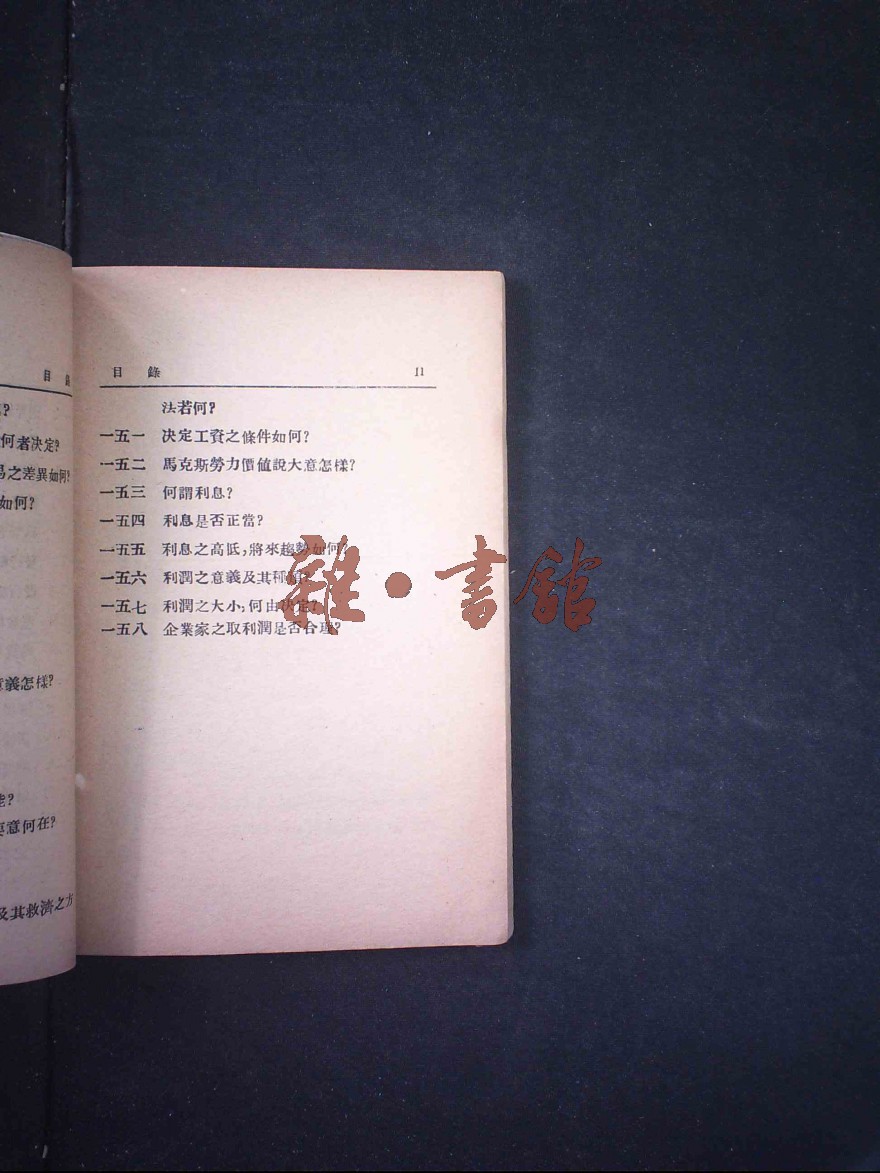 目 錄
?
何者決定?
易之差異如何?
如何?
義怎樣?
能?
意何在?
及其救濟之方
目 錄 11
法若何?
一五一 決定工資之條件如何?
一五二 馬克斯勞力價値說大意怎樣?
一五三 何謂利息?
一五四 利息是否正當?
一五五 利息之高低,將來趨勢如何?
一五六 利潤之意義及其種類?
一五七 利潤之大小,何由決定?
一五八 企業家之取利潤是否合理?
雜·書館